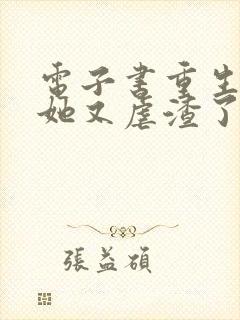 電子書重生
她又虐渣了
張益碩